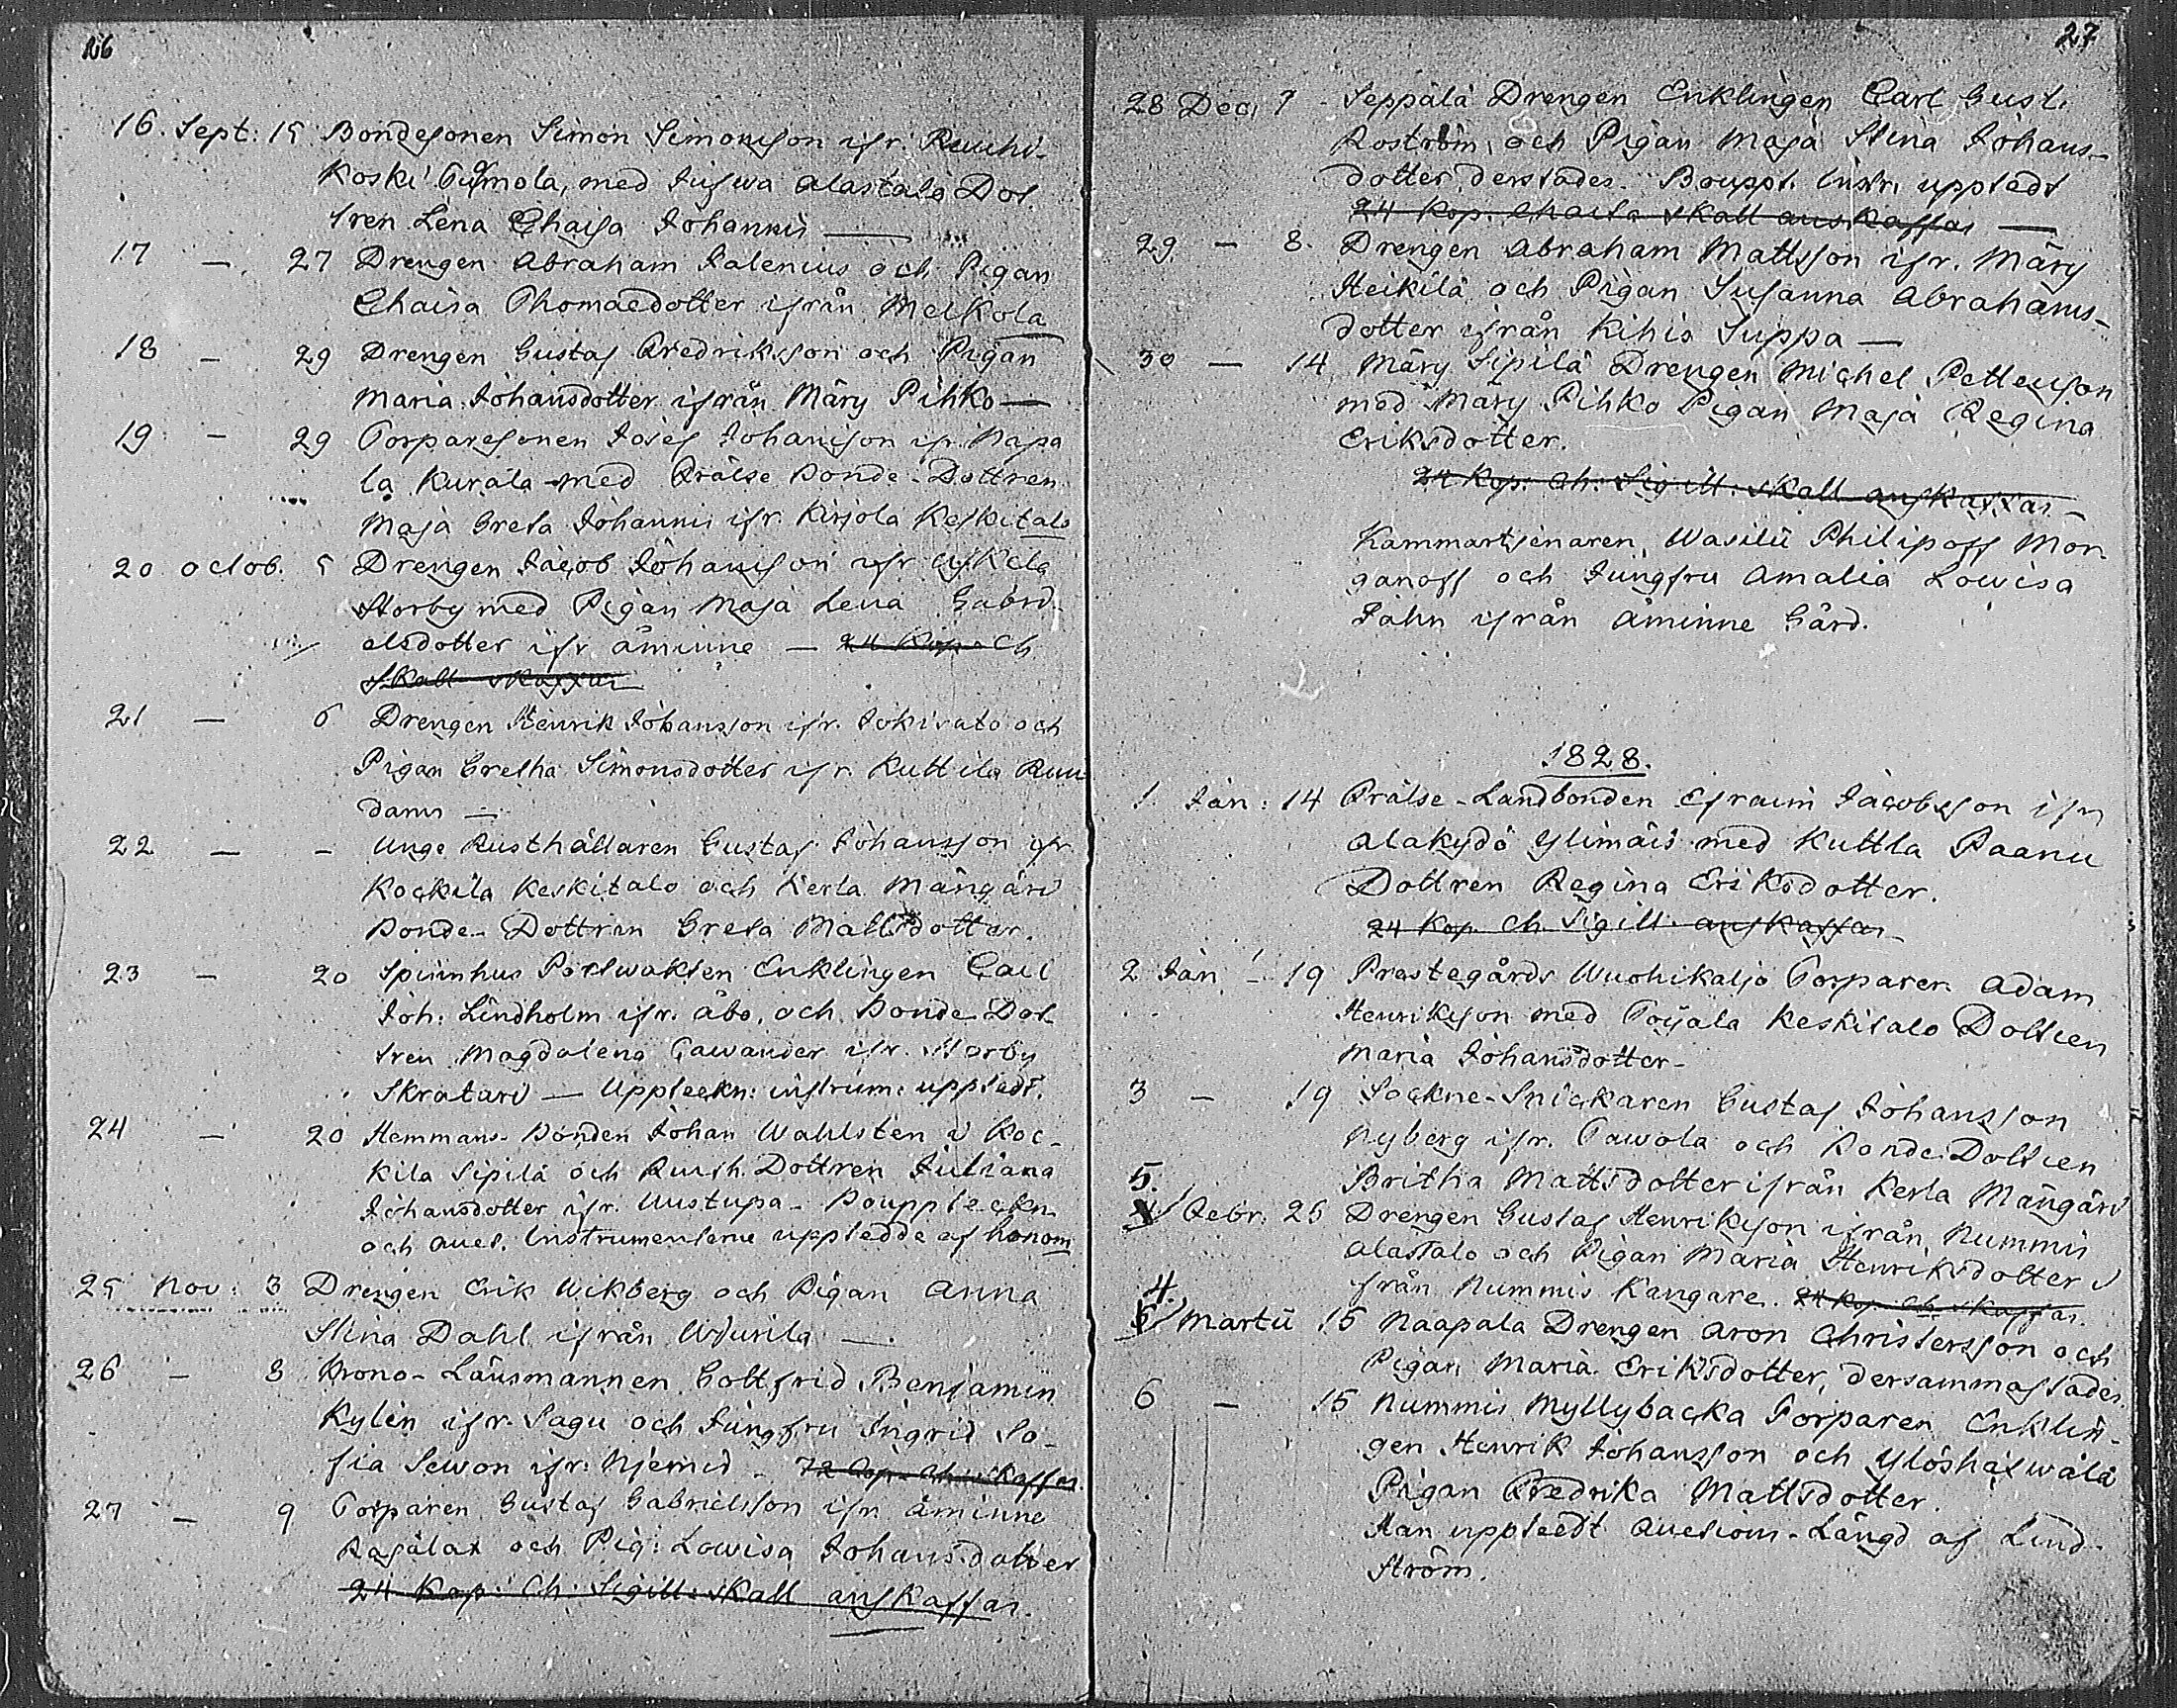 26
16. Sept: 15 Bondesonen Simon Simonsson ifr. Ruuhi-
Koski Tuimola, med Jufwa Alastalo Dot
tren Lena Chaisa Johannis —
17 — 27 Drengen Abraham Palenius och Pigan
Chaisa Thomaedotter ifrån Melkola
18 — 29 Drengen Gustaf Fredriksson och Pigan
Maria Johansdotter ifrån Märy Pihko —
19 — 29 Torparesonen Josef Johansson ifr. Napa
la Kurala med Frälse Bonde-Dottren
Maja Greta Johannis ifr. Kirjola Keskitalo
20 Octob. 5 Drengen Jacob Johansson ifr
Storby med Pigan Maja Lena Gabri-
elsdotter ifr Åminne — 24 Kop Ch
Skall skaffas
21 — 6 Drengen Henrik Johansson ifr. Jokirato och
Pigan Gretha Simonsdotter ifr. Kuttila Ruu
danu —
22 — - Unge Rusthållaren Gustaf Johansson ifr
Kockila Keskitalo och Kerla Mångård
Bonde-Dottren Greta Mattsdotter.
23 — 20 Spinnhus Portwakten Enklingen Carl
Joh: Lindholm ifr. Åbo, och Bonde-Dot
tren Magdalena Tawander ifr. Storby
Skratari — Uppteckn: instrum: uppledt.
24 — 20 Hemmans-Bonden Johan Wahlsten i Koc-
kila Sipilä och Rusth. Dottren Juliana
Johansdotter ifr. Uustupa - Bouppteckn
och Auct. Instrumenterne uppledde af honom
25 Nov: 3 Drengen Erik Wikberg och Pigan Anna
Stina Dahl ifrån Wiurila —.
26 — 8 Krono-Länsmannen Gottfrid Benjamin
Kylén ifr. Sagu och Jungfru Ingrid So-
fia Sewon ifr: Njemis - 72 Cop. Ch: skaffas.
27 — 9 Torparen Gustaf Gabrielsson ifr. Åminne
Rajalax och Pig: Lowisa Johansdotter
24 Kop: Ch: Sigill: skall anskaffas.
27
28 Dec, 7 - Seppälä Drengen Enklingen Carl Gust.
Roström, och Pigan Maja Stina Johans-
dotter derstädes. Bouppt. Instr. uppledt
24 Kop. Charta skall anskaffas —
29 — 8. Drengen Abraham Mattsson ifr. Märy
Heikilä och Pigan Susanna Abrahams-
dotter ifrån Kihis Suppa —
30 — 14 Märy Sipilä Drengen Michel Pettersson
med Märy Pihko Pigan Maja Regina
Eriksdotter.
24 Kop. Ch: Sigill: skall anskaffas -
Kammartjenaren, Wasilii Philipoff Mor
ganoff och Jungfru Amalia Lowisa
Pahn ifrån Åminne Gård.
1828.
1. Jan: 14 Frälse-Landbonden Efraim Jacobsson ifrn
Alakydö Ylimäis med Kuttla Paanu
Dottren Regina Eriksdotter.
24 Kop. Ch. Sigill. anskaffas
2 Jan - 19 Prestegårds Wuohikaljo Torparen Adam
Henriksson med Toijala Keskitalo Dottren
Maria Johansdotter -
3 — 19 Sockne-Snickaren Gustaf Johansson
Nyberg ifr. Tawola och Bonde-Dottren
Britha Mattsdotter ifrån Kerla Mångård
5. Febr. 25 Drengen Gustaf Henriksson ifrån Nummis
Alastalo och Pigan Maria Henriksdotter i
från Nummis Kangare. 24 Kop. Ch. skaffas.
4. Martii 15 Naapala Drengen Aron Christersson och
Pigan Maria Eriksdotter, dersammastädes.
6 — 15 Nummis Myllybacka Torparen Enklin-
gen Henrik Johansson och Ylöshäxwälä
Pigan Fredrika Mattsdotter.
Han uppledt Auctions-Längd af Lind-
ström.